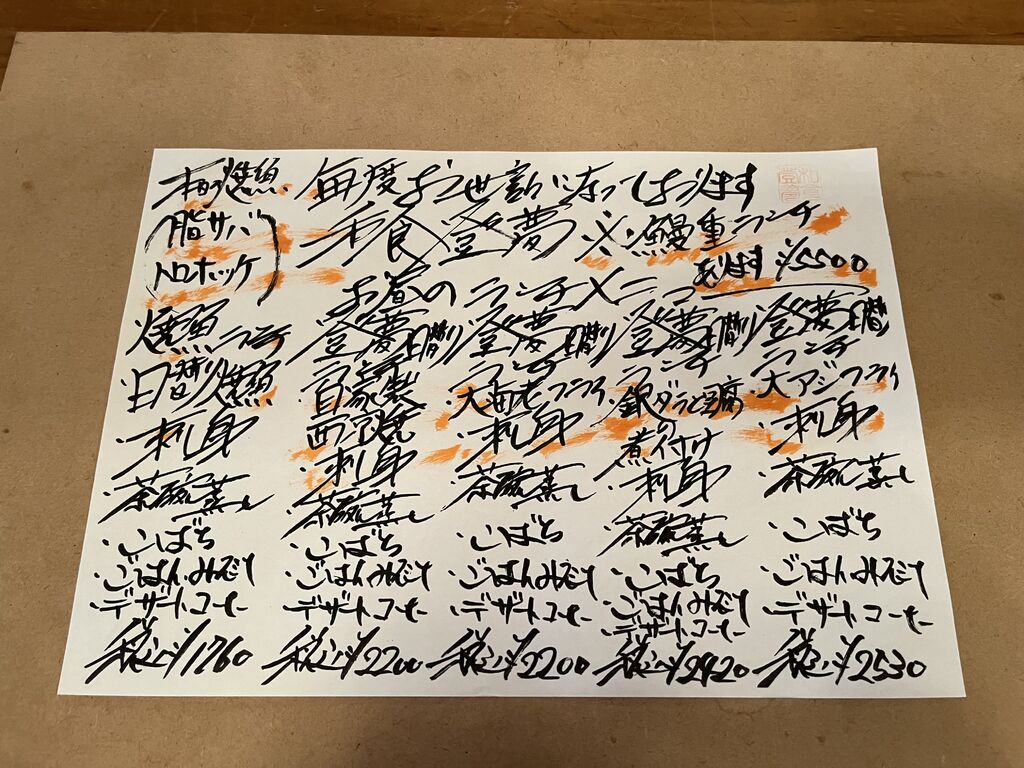 毎度お世話になっております
和食 登夢 ※鰻重ランチ
あります ¥5500
お昼のランチメニュー
本日の焼魚
脂サバ
トロホッケ
焼魚ランチ
日替り焼魚
・刺身
・茶碗蒸し
・こばち
・ごはん・みそ汁
・デザートコーヒー
税込¥1760
登夢日替り
ランチ
自家製
西京焼
・刺身
・茶碗蒸し
・こばち
・ごはん・みそ汁
・デザートコーヒー
税込¥2200
登夢日替り
ランチ
大海老フライ
・刺身
・茶碗蒸し
・こばち
・ごはん・みそ汁
・デザートコーヒー
税込¥2200
登夢日替り
ランチ
銀ダラと豆腐
の
煮付け
・刺身
・茶碗蒸し
・こばち
・ごはん・みそ汁
・デザートコーヒー
税込¥2420
登夢日替り
ランチ
大アジフライ
・刺身
・茶碗蒸し
・こばち
・ごはん・みそ汁
・デザートコーヒー
税込¥2530